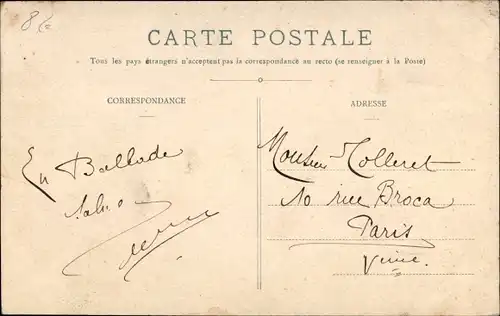 8 €
CARTE POSTALE
Tous les pays étrangers n'acceptent pas la correspondance au recto (se renseigner à la Poste)
CORRESPONDANCE
En Ballade
ADRESSE
Monsieur Colleret
10 rue Broca
Paris
Vème